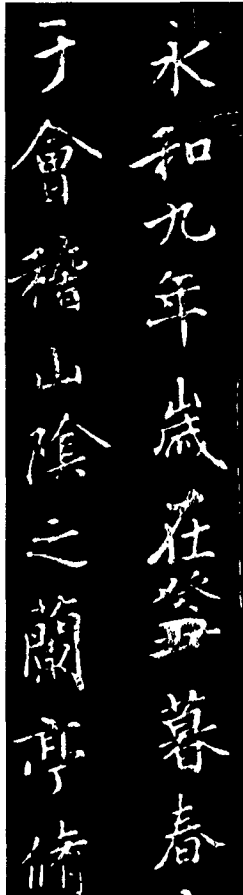 永和九年歲在癸丑暮春
于會稽山陰之蘭亭脩